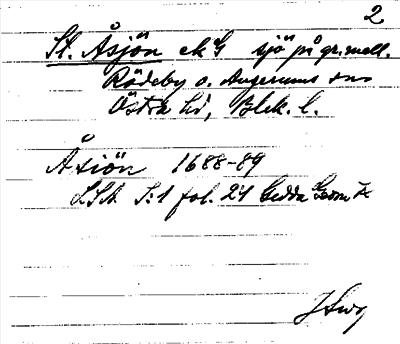 2
St. Åsjön ek G sjö på gr. mell.
Rödeby o. Augerums snr
Östra hd, Blek. l.
Åsiön 1688-89
LSA S:1 fol. 24 Gedda Geom.